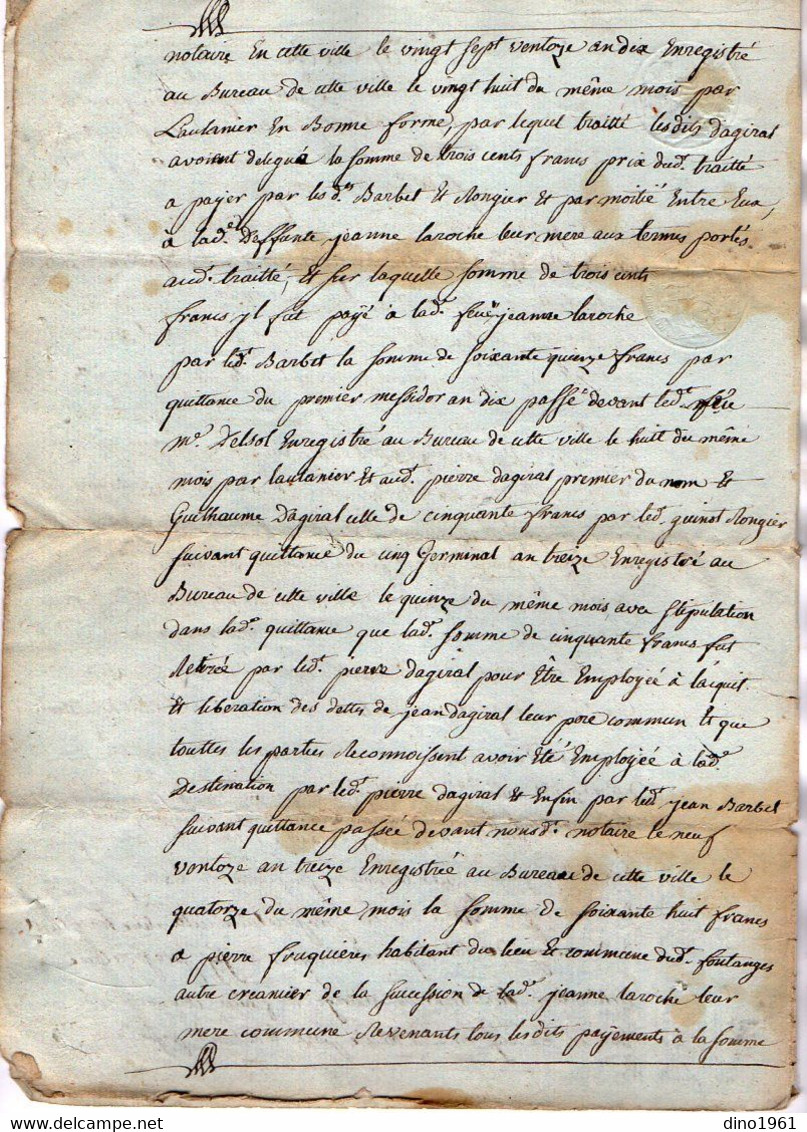 notaire En cette ville le vingt sept ventoze an dix Enregistré
au Bureau de cette ville le vingt huit du même mois par
Laulanier En Bonne forme, par lequel traitté lesdits dagiral
avoient delegué la somme de trois cents francs prix dud.t traitté
a payer par lesd.ts Barbet et Rongier et par moitié Entre Eux,
à lad.e Deffunte jeanne laroche leur mere aux termes portés
aud.t traitté, et sur laquelle somme de trois cents
francs jl fut payé à lad.e feue jeanne laroche
par led.t Barbet la somme de soixante quinze francs par
quittance du premier messidor an dix passé devant led.t feu
m.e Delsol Enregistré au Bureau de cette ville le huit du même
mois par laulanier et aud.t pierre dagiral premier du nom et
Guilhaume Dagiral celle de cinquante francs par led.t guinot Rongier
suivant quittance du cinq Germinal an treize Enregistré au
Bureau de cette ville le quinze du même mois avec stipulation
dans lad.e quittance que lad.e somme de cinquante francs fut
Retirée par led.t pierre dagiral pour Être Employéé à l'acquit
et liberation des dettes de jean dagiral leur pere commun et que
touttes les parties Reconnoissent avoir Été Employéé à lad.e
Destination par led.t pierre dagiral et Enfin par led.t jean Barbet
suivant quittance passéé devant nousd.t notaire le neuf
ventoze an treize Enregistréé au Bureau de cette ville le
quatorze du même mois la somme de soixante huit francs
a pierre fruquieres habitant du lieu et commune dud.t fontanges
autre creancier de la succession de lad.e jeanne laroche leur
mere commune Revenants tous lesdits payements à la somme
dino1961